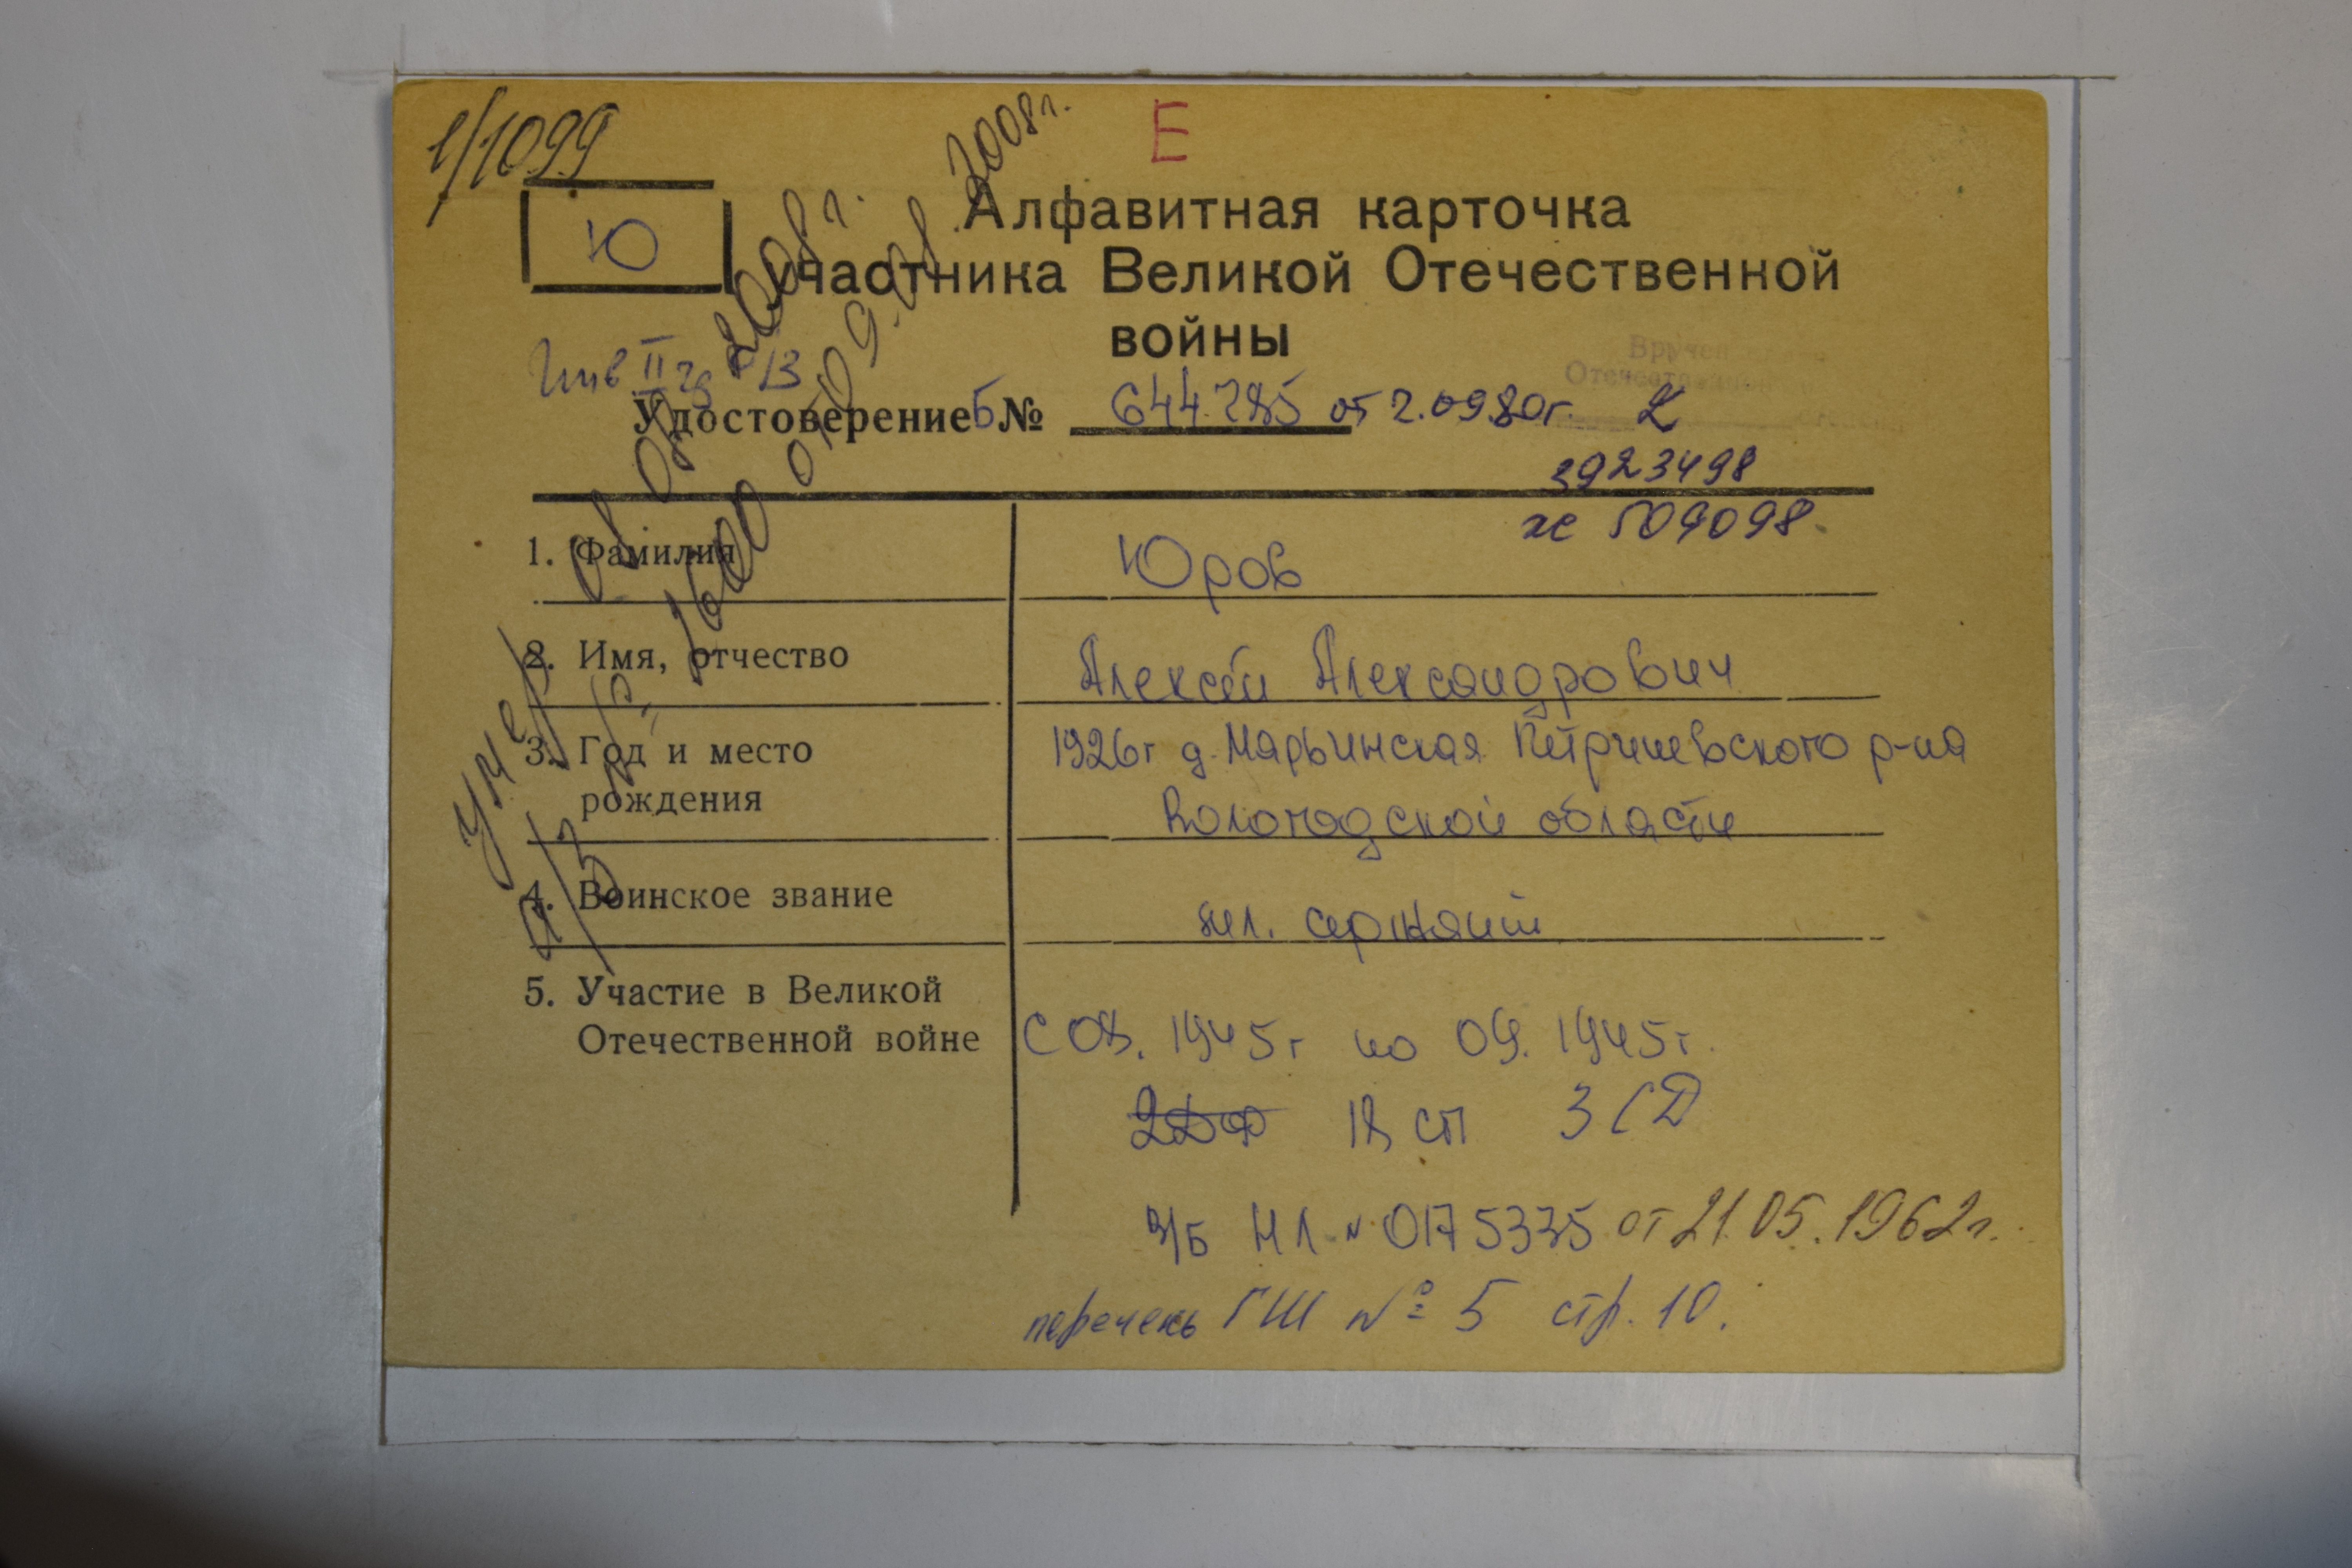 1/1099
Е
Ю
Алфавитная карточка
участника Великой Отечественной
войны
Инв II гр
Удостоверение Б № 644285 от 2.09.80г.
3923498
509098
1. Фамилия Юров
2. Имя, отчество Алексей Александрович
3. Год и место рождения 1926г д. Марьинская Петриневского р-на
Вологодской области
4. Воинское звание мл. сержант
5. Участие в Великой Отечественной войне С 08. 1945г по 09. 1945г.
18 сп 3 СД
в/б НЛ № 0175335 от 21.05.1962г.
перечень ГШ № 5 стр. 10.
умер 08.2008г.
1600 от 09.08.2008г.